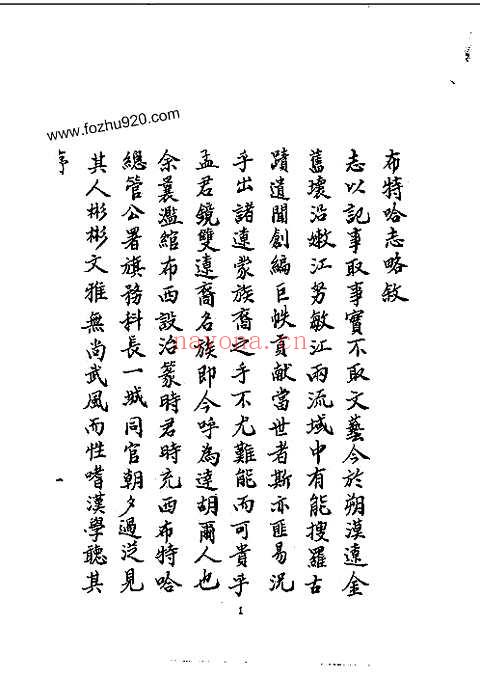 布特哈志略敘
志以記事取事實不取文藝今於朔漠遼金
舊壤沿嫩江努敏江兩流域中有能搜羅古
蹟遺聞創編巨帙貢獻當世者斯亦匪易況
乎出諸遼蒙族裔之手不尤難能而可貴乎
孟君鏡雙遼裔名族即今呼為達胡爾人也
余曩濫綰布西設治篆時君時充西布特哈
總管公署旗務科長一城同官朝夕過從見
其人彬彬文雅無尚武風而性嗜漢學聽其
序
一
1
www.fozhu920.com
nayona.cn